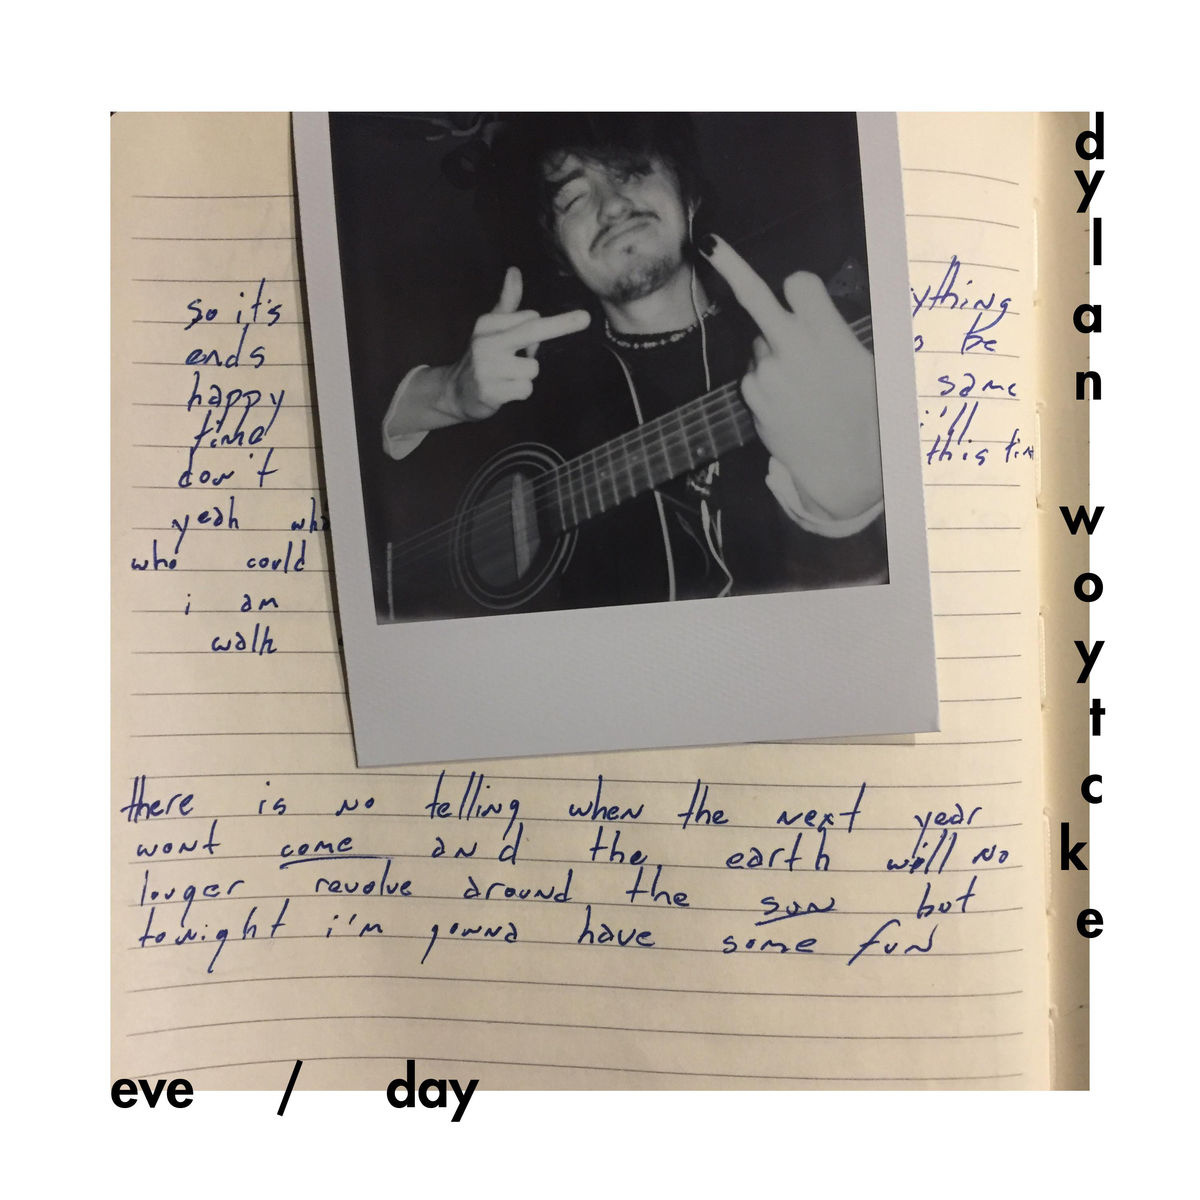 dylan woytcke
so it's ything
ends be
happy same
time i'll
don't this
yeah
who could
i am
walk
there is no telling when the next year
wont come and the earth will no
longer revolve around the sun but
tonight i'm gonna have some fun
eve / day